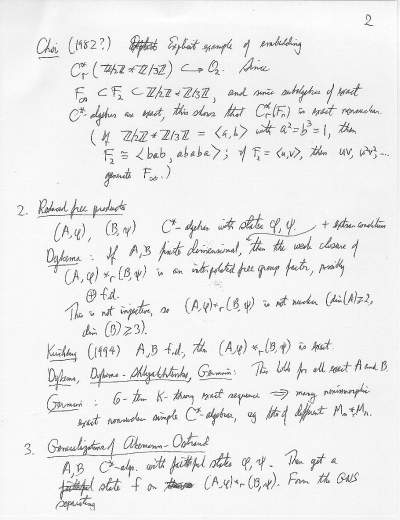 2
Choi (1982?) Explicit example of embedding
C*r (ℤ/2ℤ * ℤ/3ℤ) ↪ O₂. Since
F∞ ⊂ F₂ ⊂ ℤ/2ℤ * ℤ/3ℤ, and since subalgebras of exact
C*-algebras are exact, this shows that C*r(Fn) is exact nonnuclear.
( If ℤ/2ℤ * ℤ/3ℤ = <a,b> with a²=b³=1, then
F₂ ≅ <bab, ababa>; if F₂ = <u,v>, then uv, u²v², ...
generate F∞.)
2. Reduced free products
(A,φ), (B,ψ) C*-algebras with states φ, ψ + extra condition
Dykema: If A,B finite dimensional, then the weak closure of
(A,φ) *r (B,ψ) is an interpolated free group factor, possibly
⊕ f.d.
This is not injective, so (A,φ) *r (B,ψ) is not nuclear (dim(A)≥2,
dim(B)≥3).
Kirchberg (1994) A,B f.d., then (A,φ) *r (B,ψ) is exact.
Dykema, Dykema-Shlyakhtenko, Germain: This holds for all exact A and B.
Germain: 6-term K-theory exact sequence ⟹ many nonisomorphic
exact nonnuclear simple C*-algebras, eg lots of different Mm * Mn.
3. Generalization of Akemann-Ostrand
A,B C*-algs. with faithful states φ, ψ. Then get a
state f on (A,φ) *r (B,ψ). Form the GNS
separating